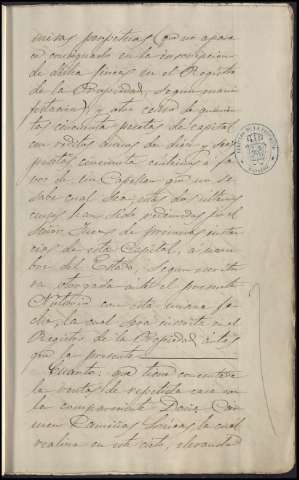 misas perpetuas (que no apare
ce consignado en la inscripcion
de dicha finca en el Registro
de la Propiedad, segun mani
festacion) y otro censo de quinien
tas cincuenta pesetas de capital
con réditos anuos de diez y seis
pesetas cincuenta centimos á fa
vor de un Capellan que no se
sabe cual sea; estas dos ultimas
han sido por el
Señor Juez de primera instan
cia de esta Capital, á nom
bre del Estado, segun escritu
ra otorgada ante el presente
Notario con esta misma fe
cha, la cual será inscrita en el
Registro de la Propiedad á
que la presente
Cuarto: que tiene concertada
la venta de repetida casa con
la compareciente Doña Car
men la cual
realiza en este acto, elevando